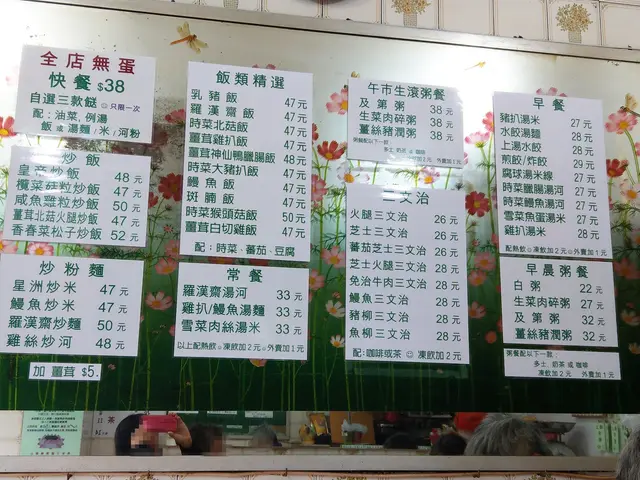 全店無蛋
快餐 $38
自選三款餸 ☺只限一次
配：油菜，例湯
飯 或 湯麵/米/河粉
炒飯
皇庭炒飯 48元
欖菜砝粒炒飯 47元
咸魚雞粒炒飯 50元
薑茸北菇火腿炒飯 47元
香春菜松子炒飯 52元
炒粉麵
星洲炒米 47元
鰻魚炒米 47元
羅漢齋炒麵 50元
雞絲炒河 48元
加 薑茸 $5.
飯類精選
乳豬飯 47元
羅漢齋飯 47元
時菜北菇飯 47元
薑茸雞扒飯 47元
薑茸神仙鴨臘腸飯 48元
時菜大豬扒飯 47元
鰻魚飯 47元
斑腩飯 47元
時菜猴頭菇飯 50元
薑茸白切雞飯 47元
配：時菜·蕃茄·豆腐
常餐
羅漢齋湯河 33元
雞扒/鰻魚湯麵 33元
雪菜肉絲湯米 33元
以上配熱飲☺凍飲加2元☺外賣加1元
午市生滾粥餐
及第粥 38元
生菜肉碎粥 38元
薑絲豬潤粥 38元
三文治
火腿三文治 26元
芝士三文治 26元
蕃茄芝士三文治 26元
芝士火腿三文治 28元
免治牛三文治 28元
鰻魚三文治 28元
豬柳三文治 28元
魚柳三文治 28元
配：咖啡或茶 ☺凍飲加2元
早餐
豬扒湯米 27元
水餃湯麵 27元
上湯水餃 27元
煎餃/炸餃 29元
腐球湯米線 27元
時菜臘腸湯河 27元
時菜鰻魚湯河 27元
雪菜魚蛋湯米 27元
雞扒湯米 28元
配熱飲☺凍飲加2元☺外賣加1元
早晨粥餐
白粥 22元
生菜肉碎粥 27元
及第粥 32元
薑絲豬潤粥 32元
粥餐配以下一款：
多士 奶茶 或 咖啡
凍飲加2元 外賣加1元